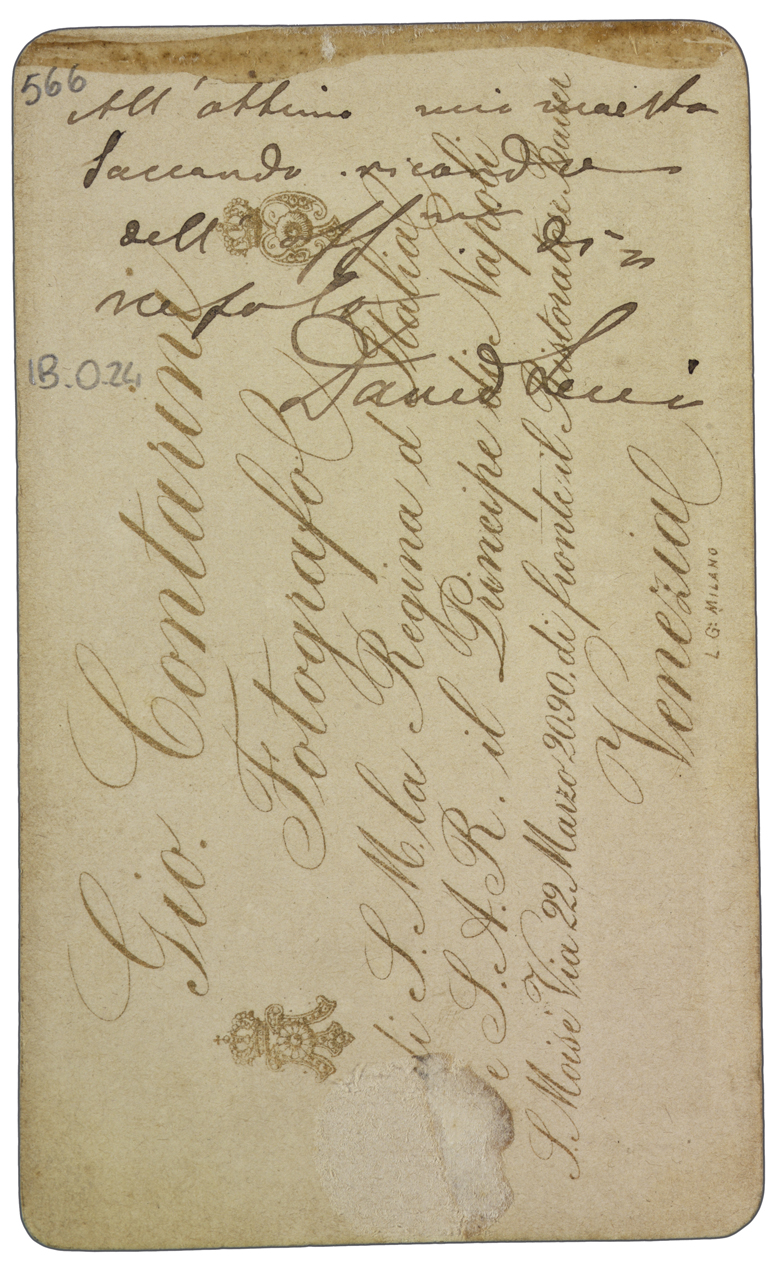 566
All'ottimo mio maestro
Saccardo ricordo
dell' aff mo di
nepolo
David
IB.O.24
Gio. Contarini
Fotografo
di S. M. la Regina d'Italia
e S. A. R. il Principe di Napoli
S. Moisè Via 22 Marzo 2090. di fronte il Ristorante Bauer
Venezia
L. G: MILANO